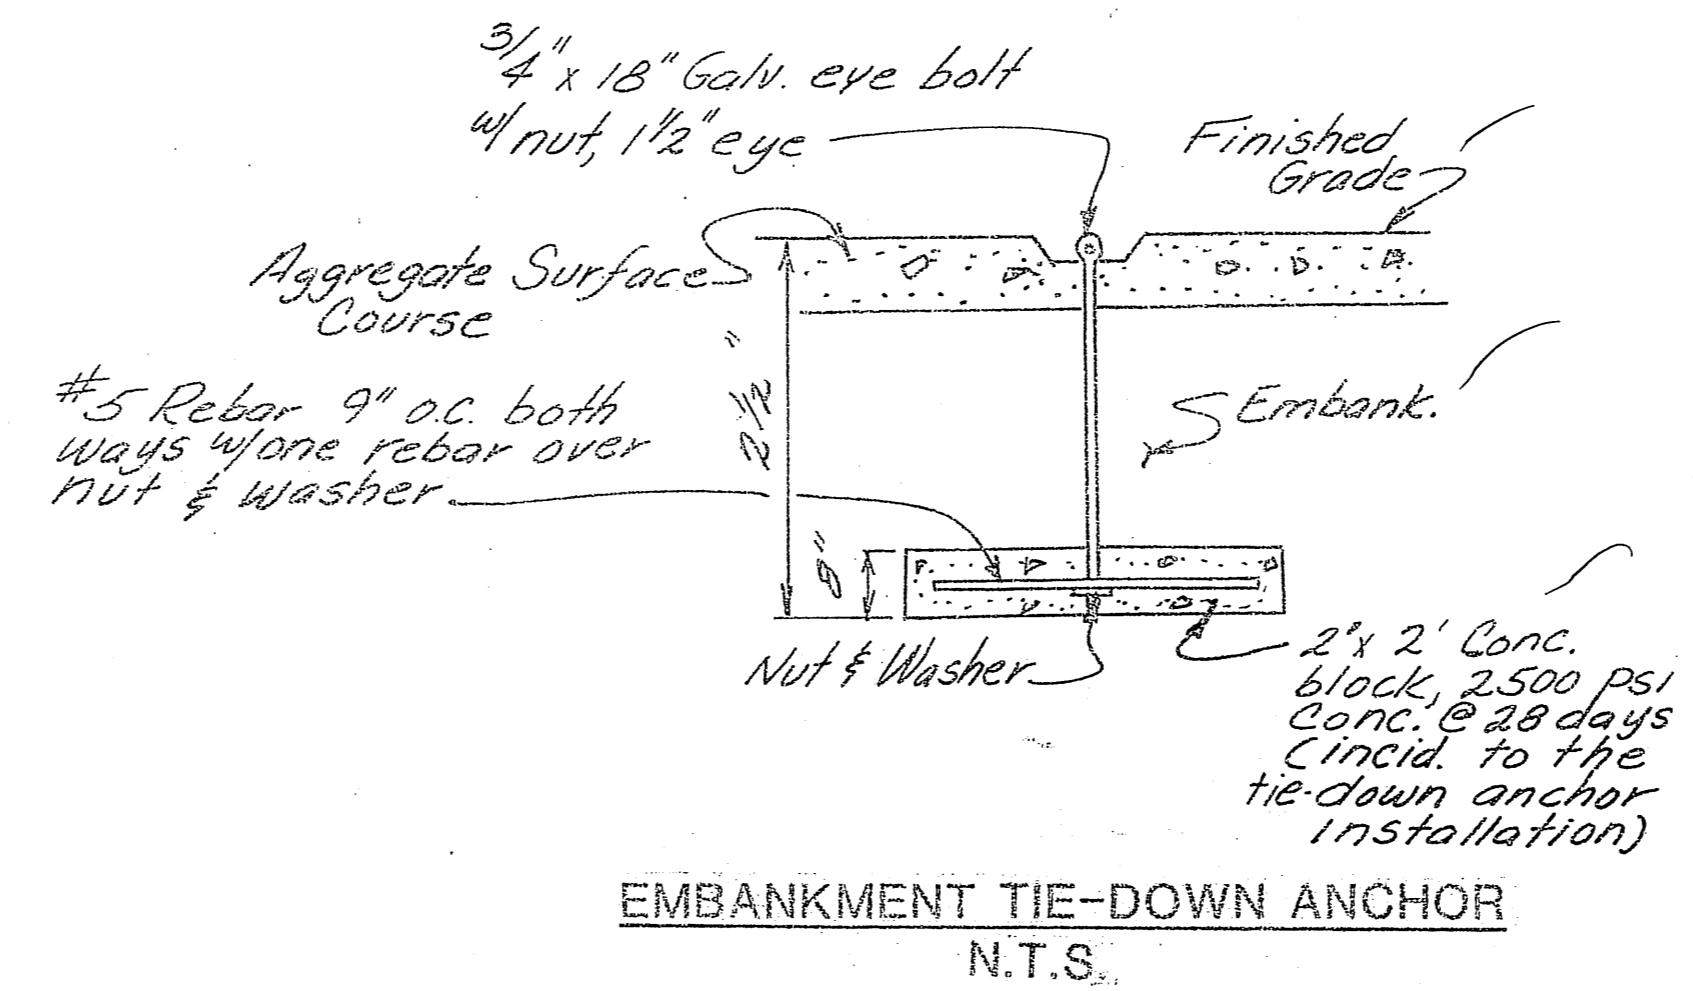 3/4" x 18" Galv. eye bolt
w/ nut, 1 1/2" eye
Finished
Grade
Aggregate Surface
Course
#5 Rebar 9" o.c. both
ways w/one rebar over
nut & washer
2 1/2"
Embank.
8"
Nut & Washer
2' x 2' Conc.
block, 2500 psi
Conc. @ 28 days
(incid. to the
tie-down anchor
installation)
EMBANKMENT TIE-DOWN ANCHOR
N.T.S.